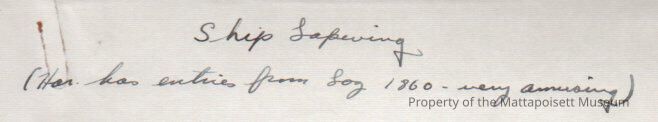 Ship Lapwing
(Har. has entries from Log 1860 - very amusing)
Property of the Mattapoisett Museum